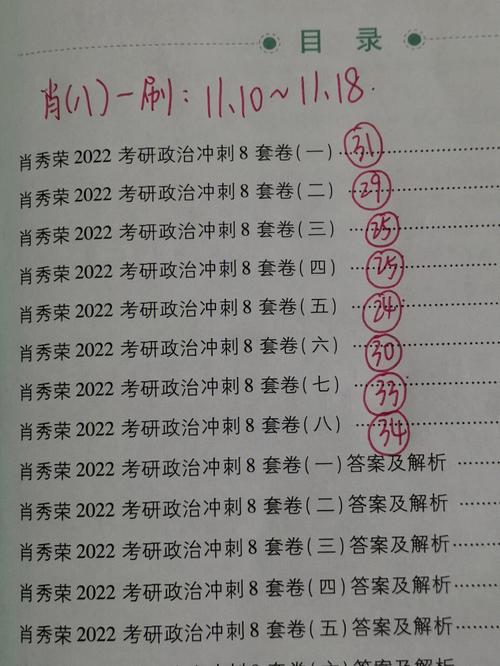 目 录
肖(八)一刷：11.10～11.18.
肖秀荣 2022 考研政治冲刺 8 套卷(一) 31
肖秀荣 2022 考研政治冲刺 8 套卷(二) 29
肖秀荣 2022 考研政治冲刺 8 套卷(三) 25
肖秀荣 2022 考研政治冲刺 8 套卷(四) 25
肖秀荣 2022 考研政治冲刺 8 套卷(五) 24
肖秀荣 2022 考研政治冲刺 8 套卷(六) 30
肖秀荣 2022 考研政治冲刺 8 套卷(七) 33
肖秀荣 2022 考研政治冲刺 8 套卷(八) 34
肖秀荣 2022 考研政治冲刺 8 套卷(一)答案及解析
肖秀荣 2022 考研政治冲刺 8 套卷(二)答案及解析
肖秀荣 2022 考研政治冲刺 8 套卷(三)答案及解析
肖秀荣 2022 考研政治冲刺 8 套卷(四)答案及解析
肖秀荣 2022 考研政治冲刺 8 套卷(五)答案及解析
肖秀荣 2022 考研政治冲刺 8 套卷(六)答案及解析